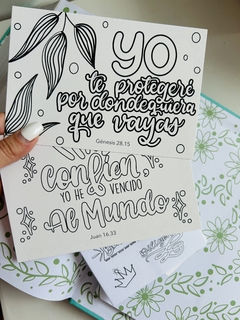 YO
te protegeré
por dondequiera
que vayas
Génesis 28.15
Confíen,
YO HE VENCIDO
Al Mundo
Juan 16.33